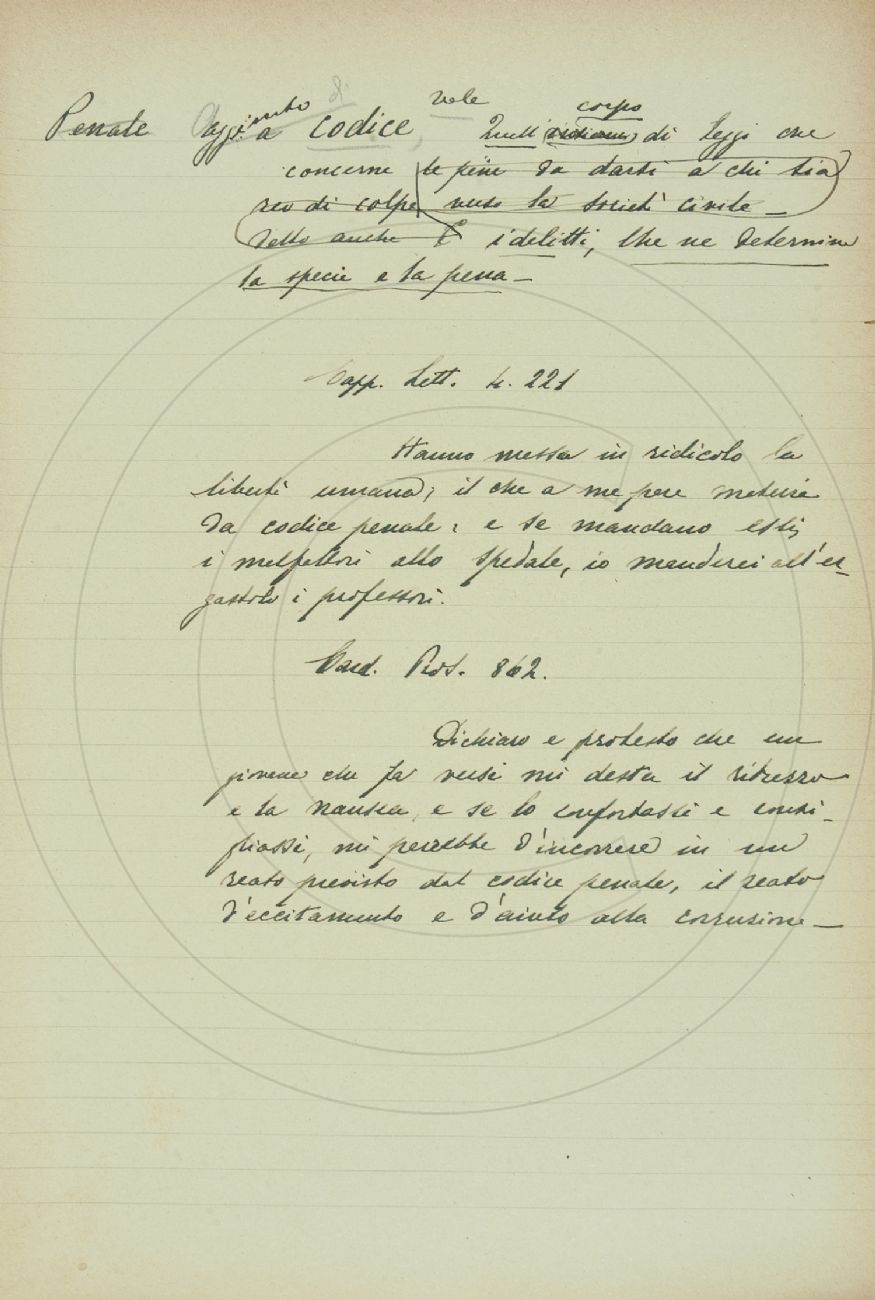 di vale corpo
Penale Aggiunto a codice, Quell'ordine di leggi che
concerne le pene da darsi a chi sia
reo di colpe verso la società civile —
Detto anche i delitti, che ne determina
la specie e la pena —
Capp. Lett. 4. 221
Hanno messa in ridicolo la
libertà umana; il che a me pare materia
da codice penale; e se mandano essi
i malfattori allo spedale, io manderei all'er-
gastolo i professori.
Card. Pros. 862.
Dichiaro e protesto che un
giovane che fa versi mi desta il ribrezzo
e la nausea, e se lo confortassi e consi-
gliassi, mi parebbe d'incorrere in un
reato previsto dal codice penale, il reato
d'eccitamento e d'aiuto alla corruzione —